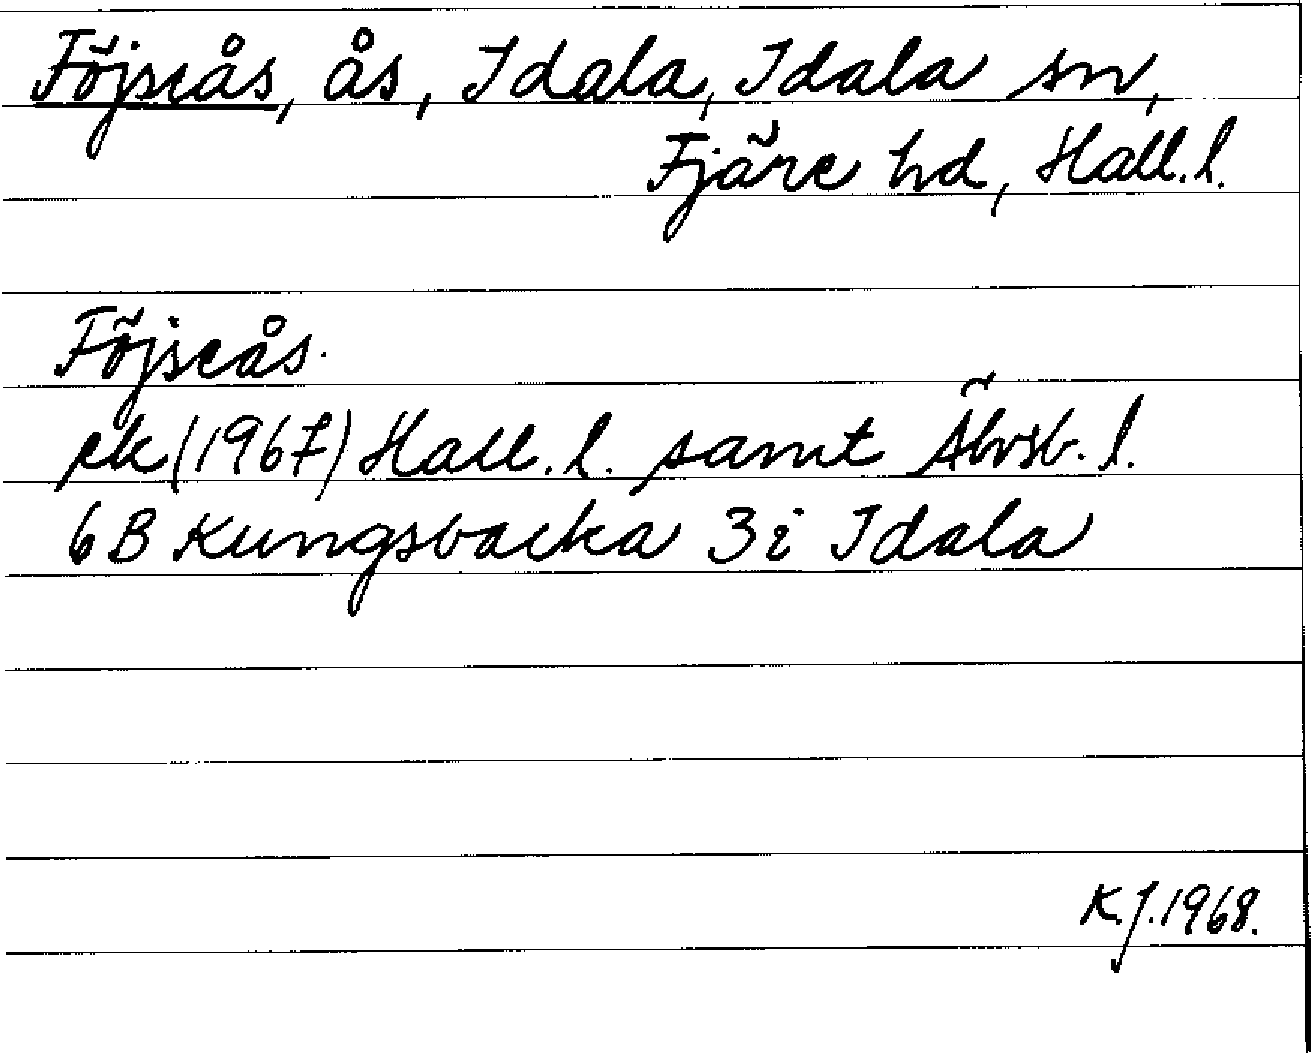 Föjseås, ås, Idala, Idala sn,
Fjäre hd, Hall.l.
Föjseås.
ek (1967) Hall.l. samt Älvsb.l.
6B Kungsbacka 3i Idala
K.J.1968.